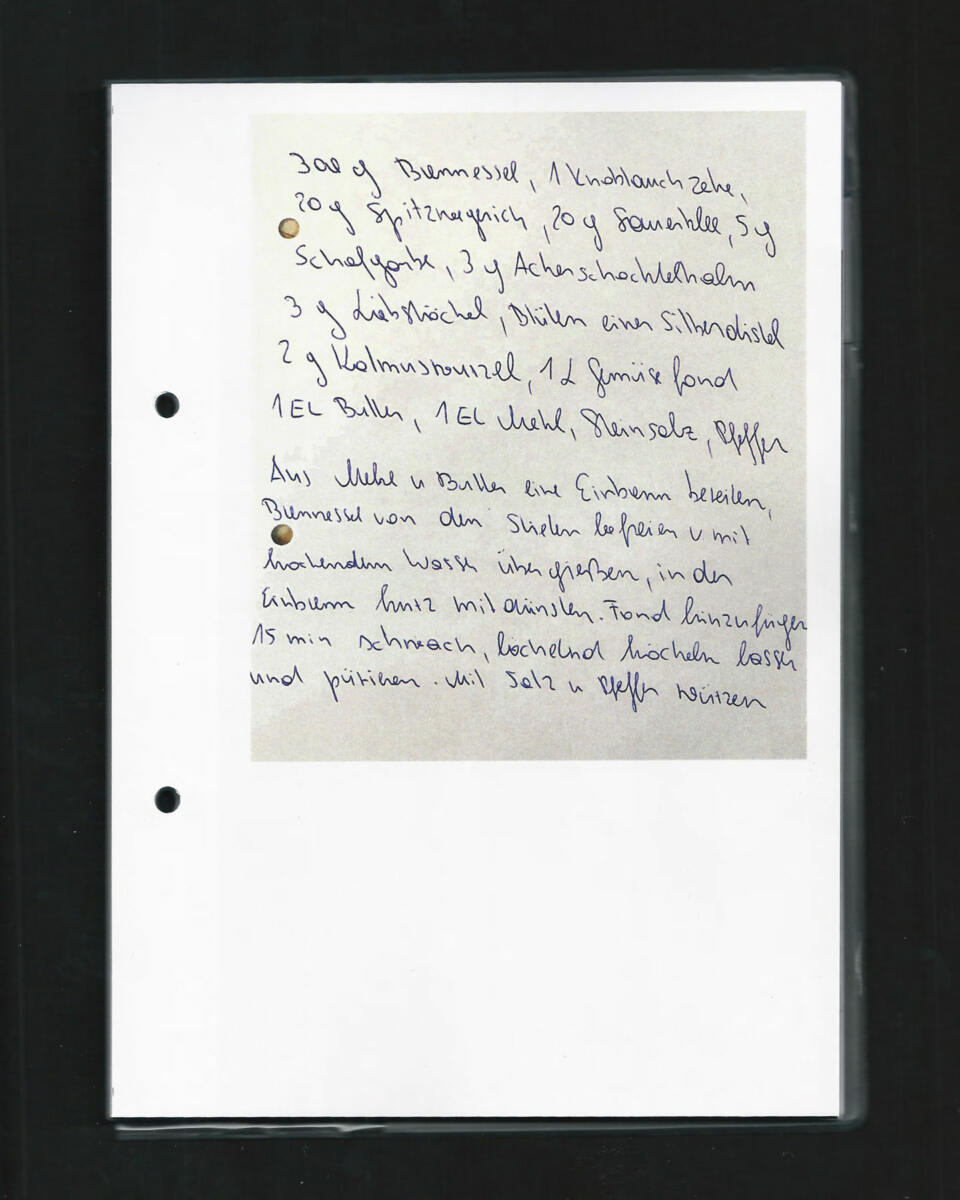 300 g Brennessel, 1 Knoblauchzehe,
20 g Spitzwegerich, 20 g Sauerklee, 5 g
Schafgarbe, 3 g Ackerschachtelhalm
3 g Liebstöckel, Blüten einer Silberdistel
2 g Kalmuswurzel, 1 L Gemüsefond
1 EL Butter, 1 EL Mehl, Steinsalz, Pfeffer
Aus Mehl u Butter eine Einbrenn bereiten,
Brennessel von den Stielen befreien u mit
kochendem Wasser übergießen, in der
Einbrenn kurz mitdünsten. Fond hinzufügen
15 min schwach, köchelnd köcheln lassen
und pürieren. Mit Salz u Pfeffer würzen